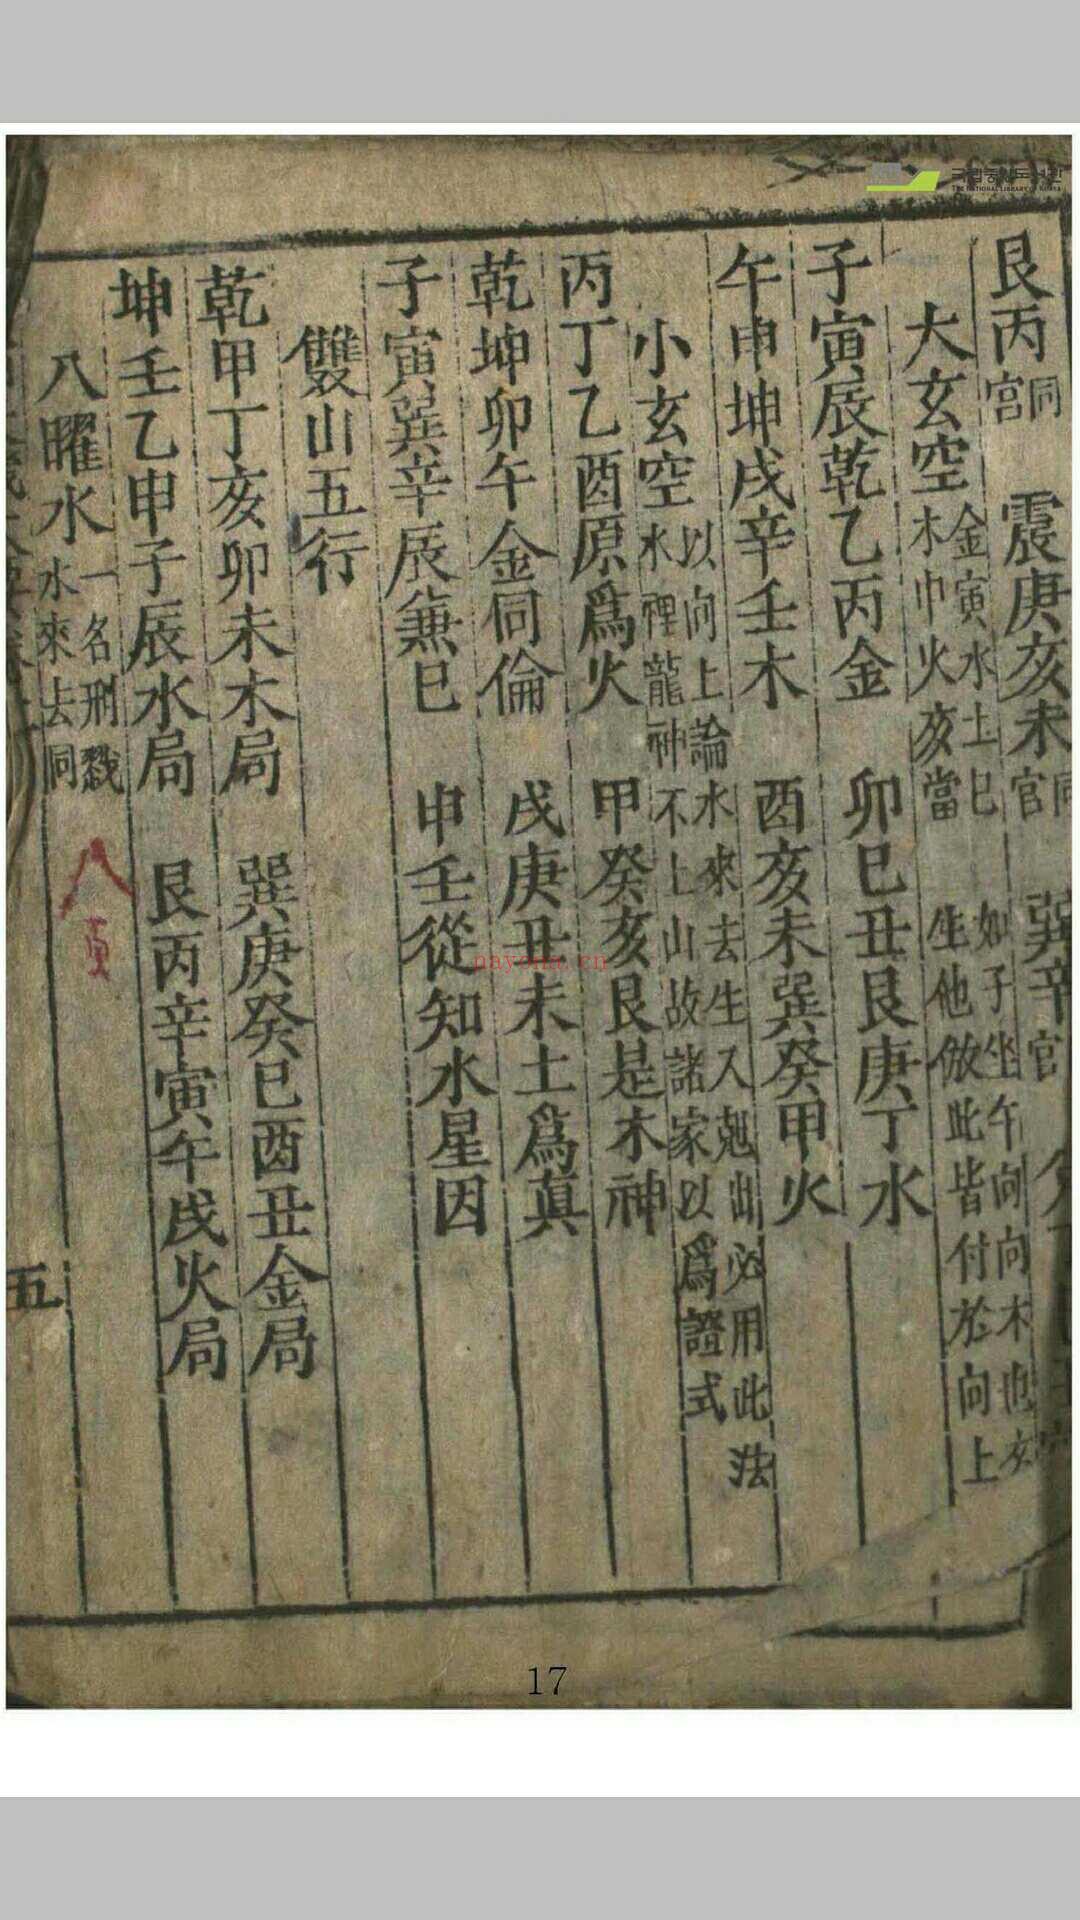 국립중앙도서관
THE NATIONAL LIBRARY OF KOREA
艮丙同宮 震庚亥未同宮 巽辛宮
大玄空 金寅水土巳木巾火亥當 如子坐午向向木也 生他倣此皆付於向上
子寅辰乾乙丙金 卯巳丑艮庚丁水
午申坤戌辛壬木 酉亥未巽癸甲火
小玄空 以向上論水來去生入剋出必用此法 水裡龍神不上山故諸家以爲證式
丙丁乙酉原爲火 甲癸亥艮是木神
乾坤卯午金同倫 戌庚丑未土爲眞
子寅巽辛辰兼巳 申壬從知水星因
雙山五行
乾甲丁亥卯未木局 巽庚癸巳酉丑金局
坤壬乙申子辰水局 艮丙辛寅午戌火局
八曜水 一名刑戮 水來去同
五
nayona.cn
17